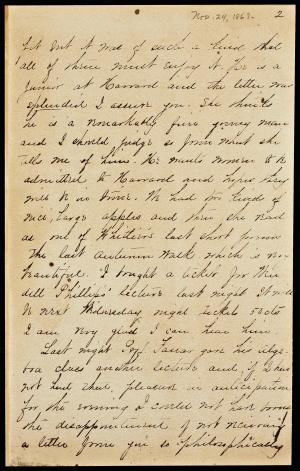 Nov. 24, 1867. 2
but it was of such a kind that
all of them must enjoy it. He is a
Junior at Harvard and the letter was
splendid I assure you. She thinks
he is a remarkably fine young man
and I should judge so from what she
tells me of him. He wants women to be
admitted to Harvard and hopes they
will be in time. We had two kinds of
nice, large apples and then she read
us one of Whittier's last short poems
The last Autumn Walk which is very
beautiful. I bought a ticket for Wen
dell Phillips' lecture last night It will
be next Wednesday night ticket 50cts
I am very glad I can hear him.
Last night Prof. gave his alge-
bra class another lecture and if I had
not had that pleasure in anticipation
for the evening I could not have borne
the disappointment of not receiving
a letter from you so philosophically